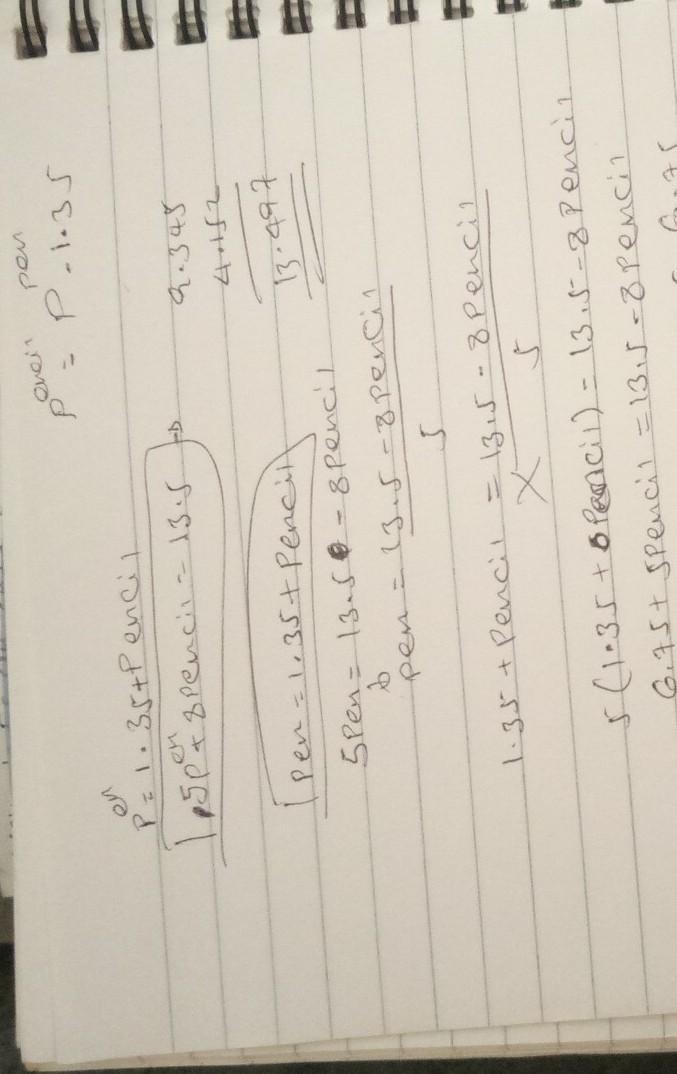 Pencil = Pen - 1.35
Pen = 1.35 + Pencil
5Pen + 8Pencil = 13.5 →
9.345
4.152
13.497
Pen = 1.35 + Pencil
5Pen = 13.5 - 8Pencil
Pen = 13.5 - 8Pencil
5
1.35 + Pencil = 13.5 - 8Pencil
5
5(1.35 + Pencil) = 13.5 - 8Pencil
6.75 + 5Pencil = 13.5 - 8Pencil